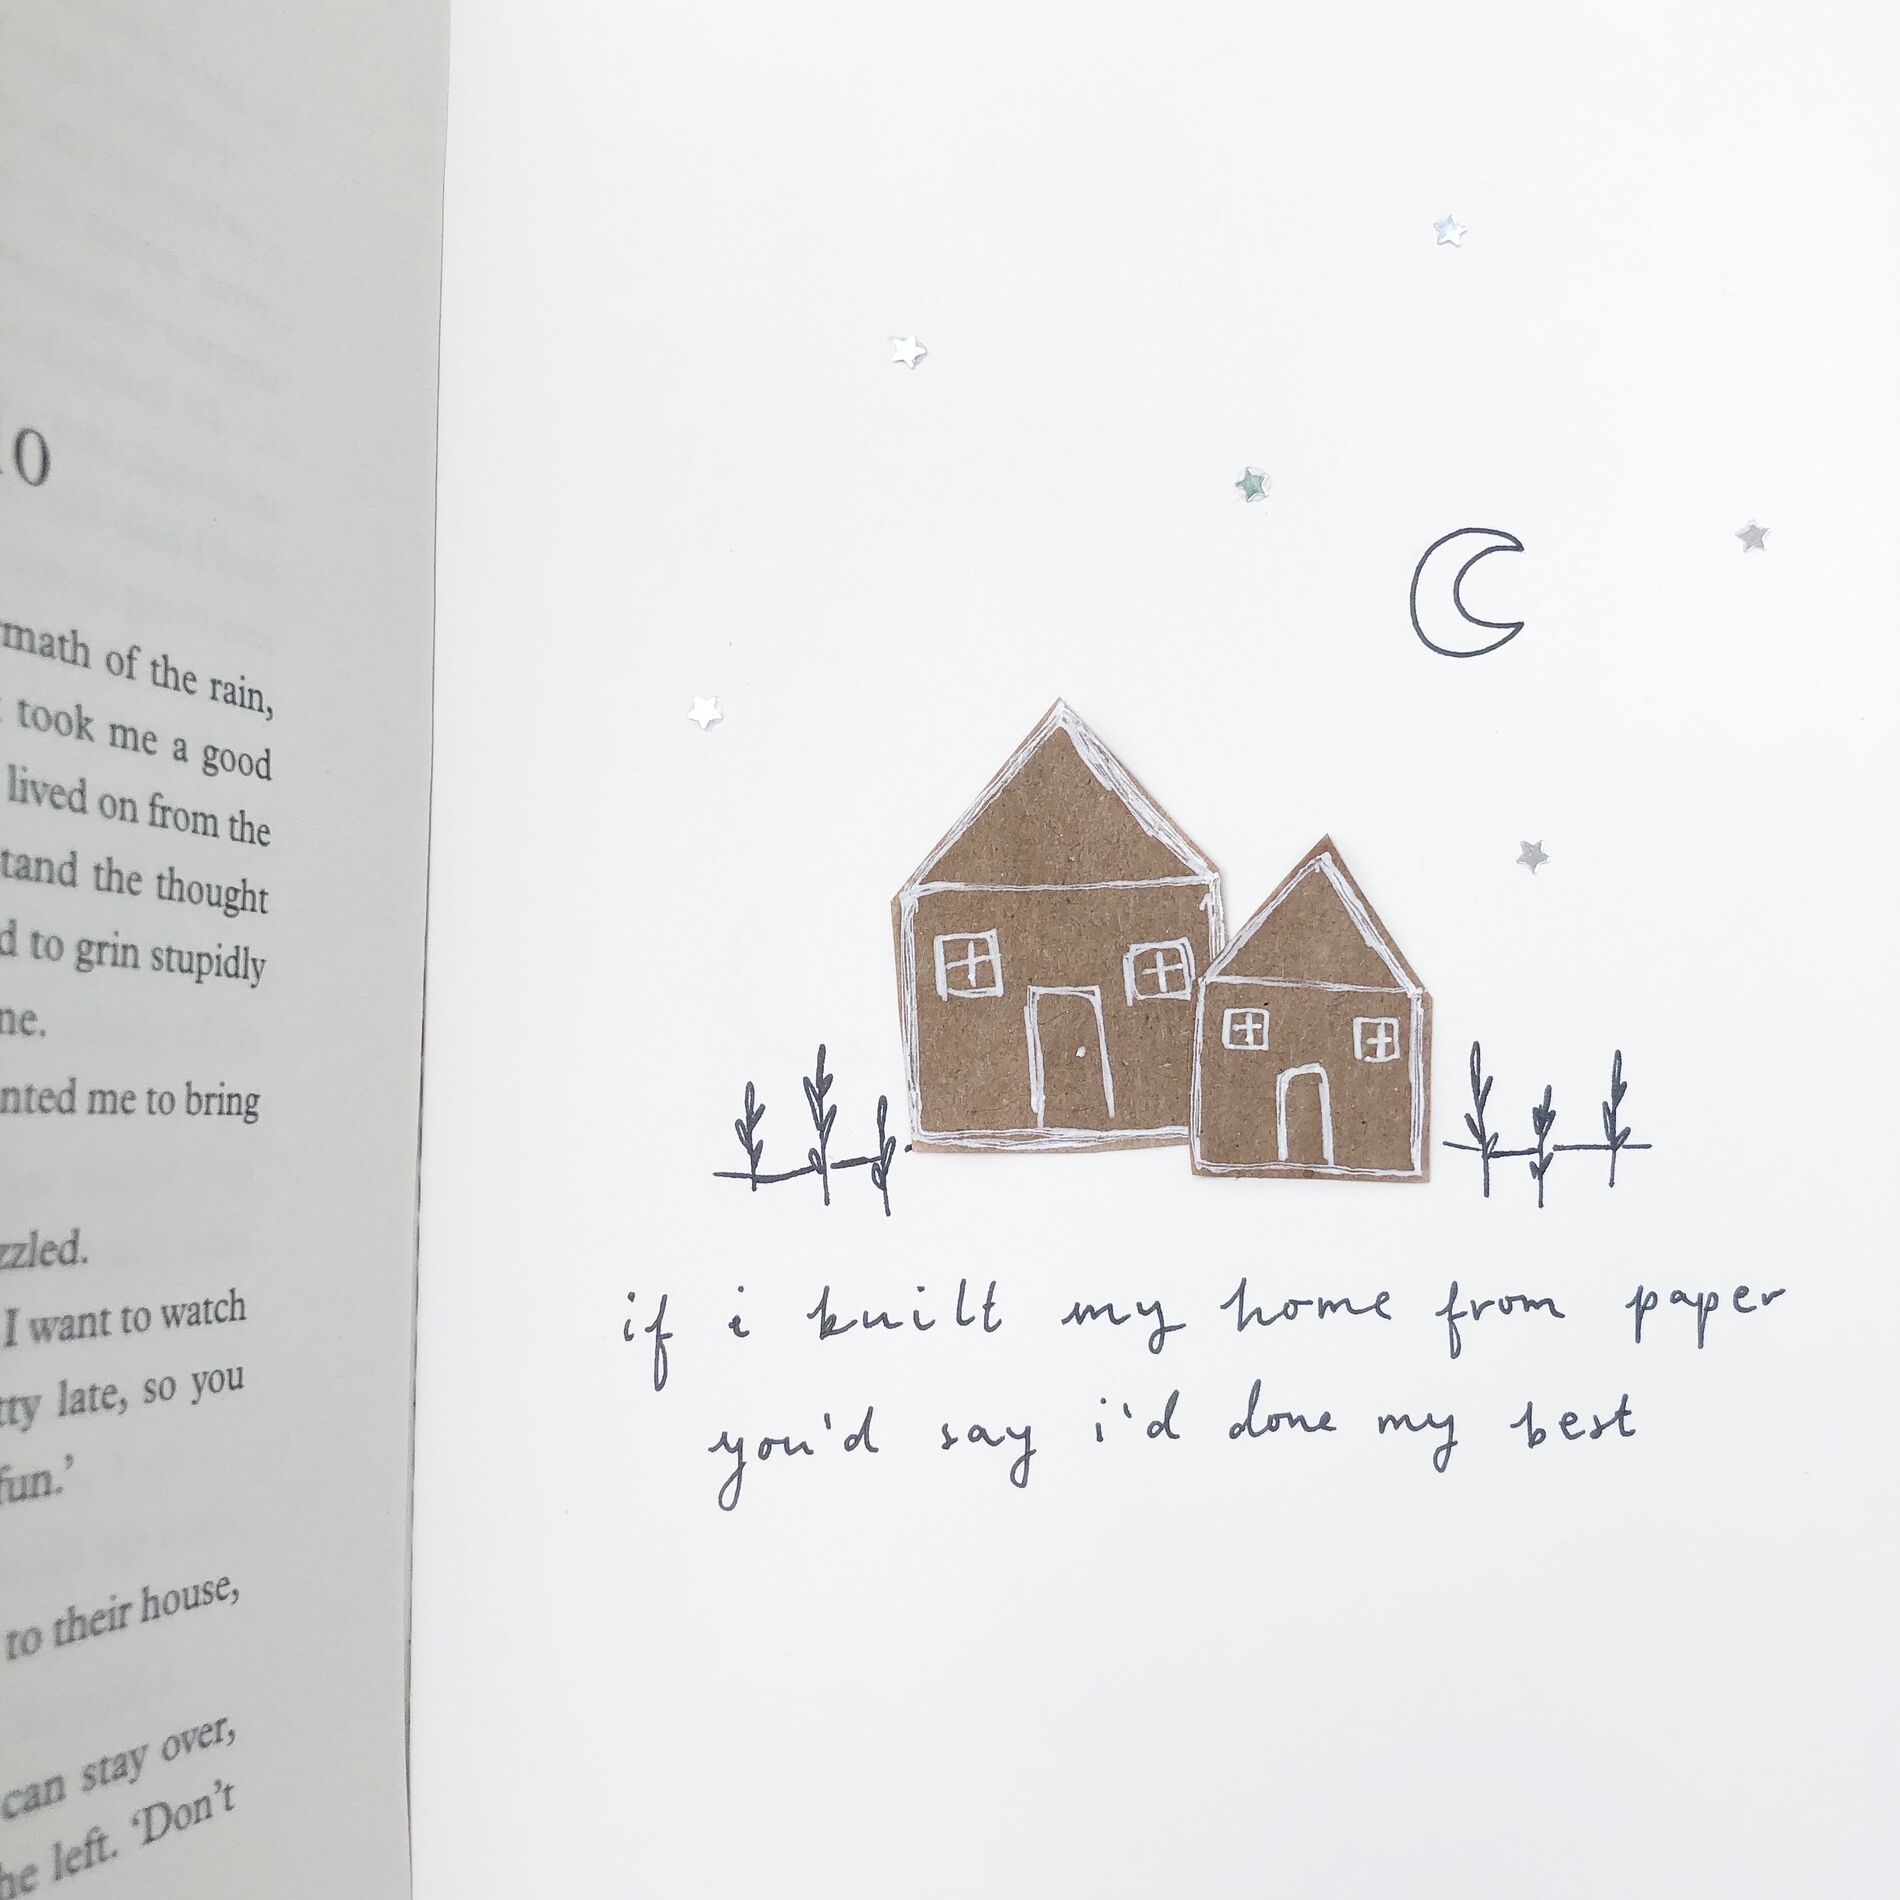 0
of the rain,
took me a good
lived on from the
the thought
to grin stupidly
me to bring
I want to watch
late, so you
fun.’
to their house,
can stay over,
left. ‘Don’t
if i built my home from paper
you'd say i'd done my best